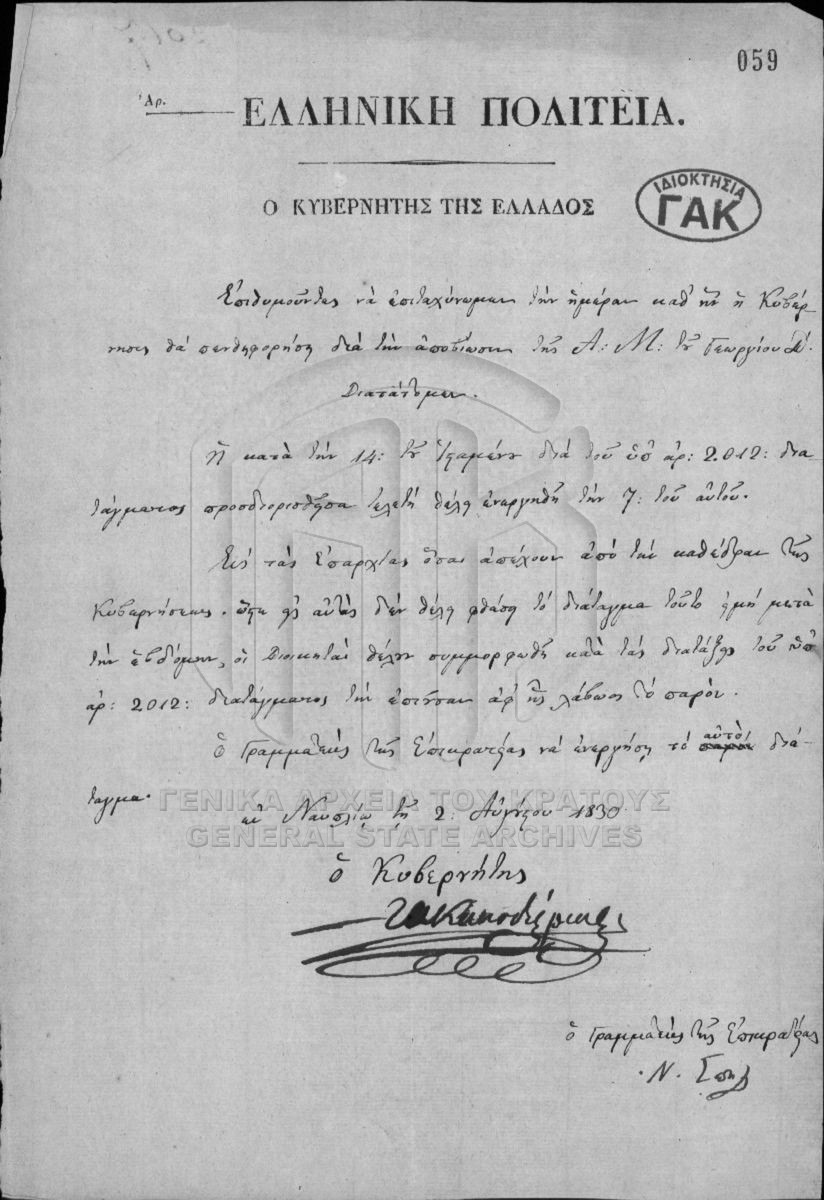 059
Ἀρ.
ΕΛΛΗΝΙΚΗ ΠΟΛΙΤΕΙΑ.
Ο ΚΥΒΕΡΝΗΤΗΣ ΤΗΣ ΕΛΛΑΔΟΣ
ΙΔΙΟΚΤΗΣΙΑ
ΓΑΚ
Ἐπιθυμοῦντες νὰ ἐπιταχύνωμεν τὴν ἡμέραν καθ' ἣν ἡ Κυβέρ-
νησις θὰ πενθηφορήσῃ διὰ τὴν ἀποβίωσιν τῆς Α: Μ: τοῦ Γεωργίου Δ'.
Διατάττομεν.
Ἡ κατὰ τὴν 14: τοῦ ἱσταμένου διὰ τοῦ ὑπ' ἀρ: 2012: δια-
τάγματος προσδιορισθεῖσα τελετὴ θέλει ἐνεργηθῆ τὴν 7: τοῦ αὐτοῦ.
Εἰς τὰς Ἐπαρχίας ὅσαι ἀπέχουν ἀπὸ τὴν καθέδραν τῆς
Κυβερνήσεως, εἰς αὐτὰς δὲν θέλει φθάσῃ τὸ διάταγμα τοῦτο εἰμὴ μετὰ
τὴν ἑβδόμην, οἱ Διοικηταὶ θέλουν συμμορφωθῆ κατὰ τὰς διατάξεις τοῦ ὑπ'
ἀρ: 2012: διατάγματος τὴν ἐπιοῦσαν ἀφ' ἧς λάβωσι τὸ παρόν.
Ὁ Γραμματεὺς τῆς Ἐπικρατείας νὰ ἐνεργήσῃ τὸ αὐτὸ παρὸν διά-
ταγμα.
ἐν Ναυπλίῳ τῇ 2: Αὐγούστου 1830.
ὁ Κυβερνήτης
Ι Α Καποδίστριας
ὁ Γραμματεὺς τῆς Ἐπικρατείας
Ν. Σπη
ΓΕΝΙΚΑ ΑΡΧΕΙΑ ΤΟΥ ΚΡΑΤΟΥΣ
GENERAL STATE ARCHIVES